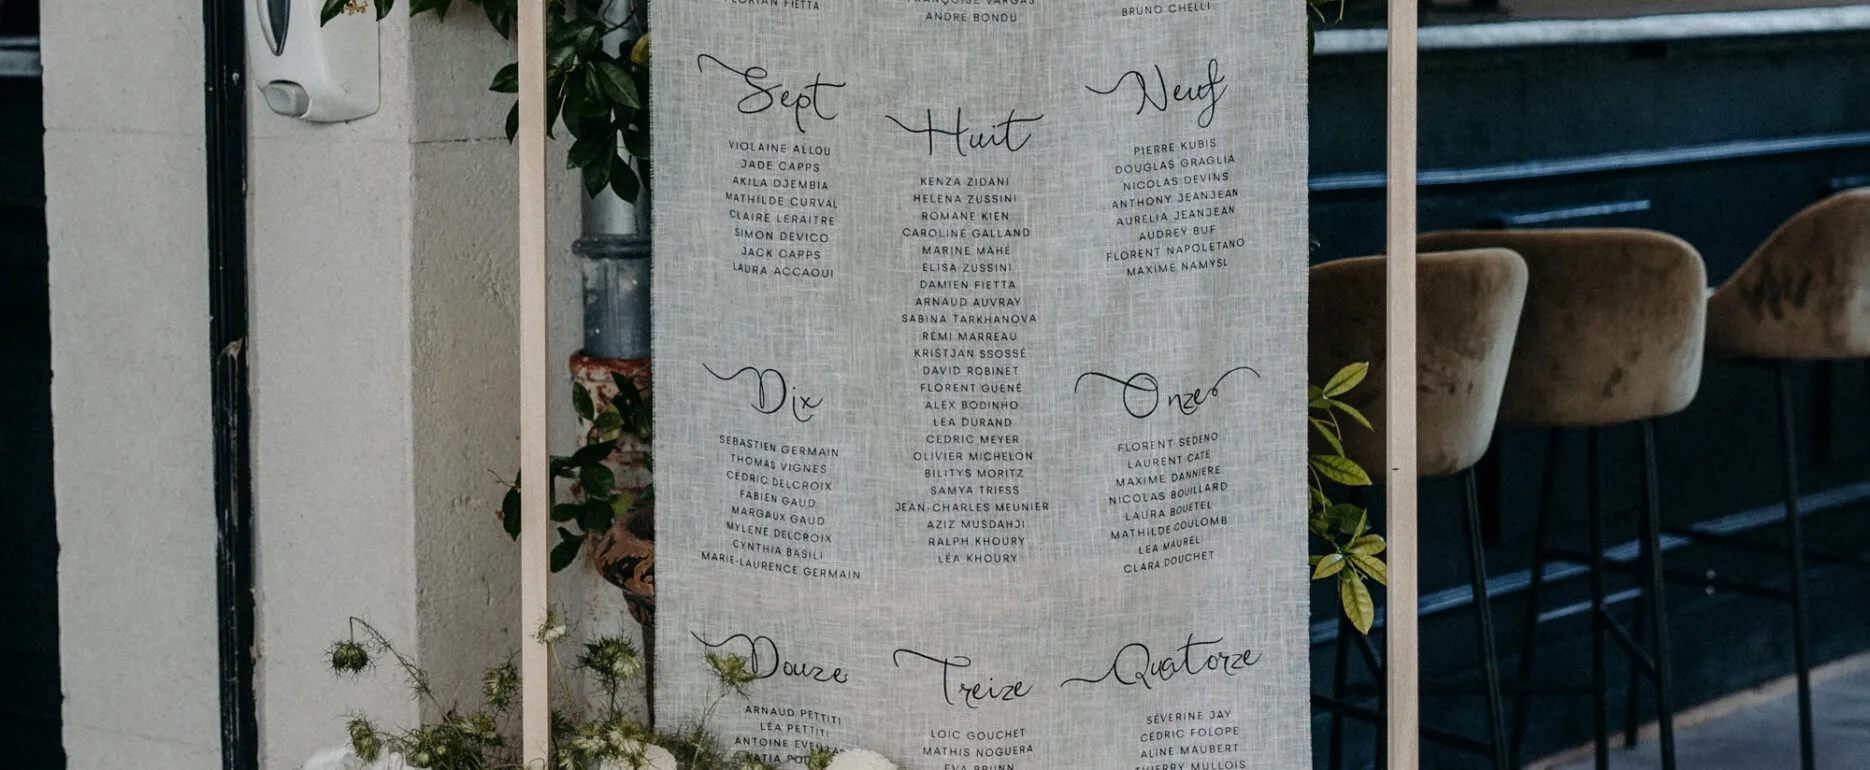 FLORIAN FIETTA
FRANÇOISE VARGAS
ANDRÉ BONDU
BRUNO CHELLI
Sept
VIOLAINE ALLOU
JADE CAPPS
AKILA DJEMBIA
MATHILDE CURVAL
CLAIRE LERAITRE
SIMON DEVICO
JACK CAPPS
LAURA ACCAOUI
Huit
KENZA ZIDANI
HELENA ZUSSINI
ROMANE KIEN
CAROLINE GALLAND
MARINE MAHÉ
ELISA ZUSSINI
DAMIEN FIETTA
ARNAUD AUVRAY
SABINA TARKHANOVA
RÉMI MARREAU
KRISTJAN SSOSSÉ
DAVID ROBINET
FLORENT GUENÉ
ALEX BODINHO
LÉA DURAND
CÉDRIC MEYER
OLIVIER MICHELON
BILITYS MORITZ
SAMYA TRIFSS
JEAN-CHARLES MEUNIER
AZIZ MUSDAHJI
RALPH KHOURY
LÉA KHOURY
Neuf
PIERRE KUBIS
DOUGLAS GRAGLIA
NICOLAS DEVINS
ANTHONY JEANJEAN
AURELIA JEANJEAN
AUDREY BUF
FLORENT NAPOLETANO
MAXIME NAMYSL
Dix
SÉBASTIEN GERMAIN
THOMAS VIGNES
CÉDRIC DELCROIX
FABIEN GAUD
MARGAUX GAUD
MYLÈNE DELCROIX
CYNTHIA BASILI
MARIE-LAURENCE GERMAIN
Onze
FLORENT SEDENO
LAURENT CATE
MAXIME DANNIERE
NICOLAS BOUILLARD
LAURA BOUETEL
MATHILDE COULOMB
LÉA MAUREL
CLARA DOUCHET
Douze
ARNAUD PETTITI
LÉA PETTITI
ANTOINE
KATIA
Treize
LOIC GOUCHET
MATHIS NOGUERA
EVA BRUNN
Quatorze
SÉVERINE JAY
CÉDRIC FOLOPE
ALINE MAUBERT
THIERRY MULLOIS